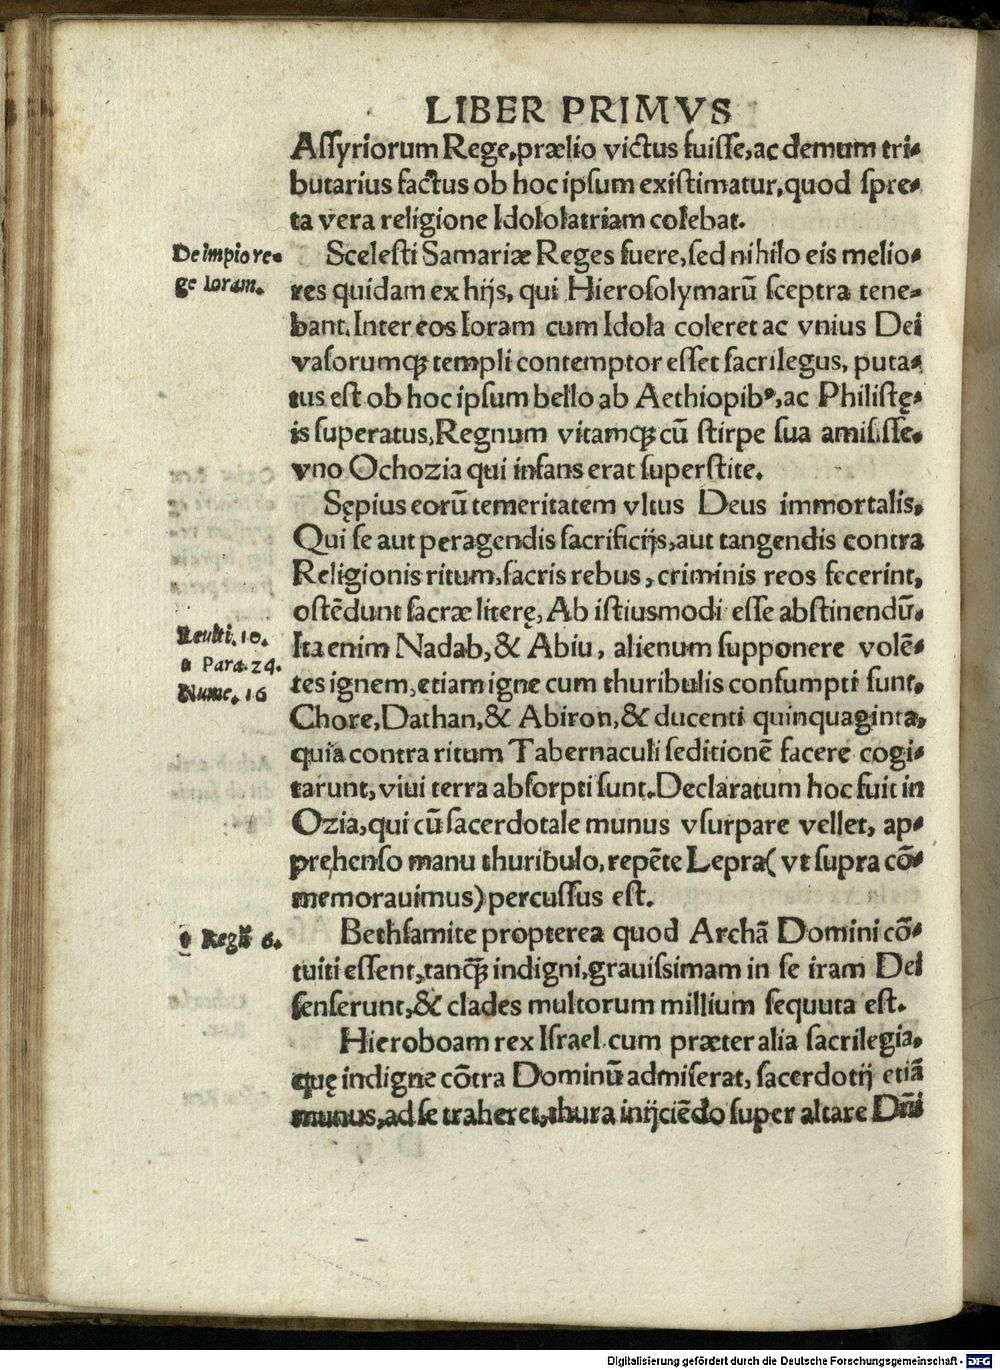 LIBER PRIMVS
Aſſyriorum Rege, prælio victus fuiſſe, ac demum tri-
butarius factus ob hoc ipſum exiſtimatur, quod ſpre-
ta vera religione Idololatriam colebat.
De impio re-
ge Ioram.
Sceleſti Samariæ Reges fuere, ſed nihilo eis melio-
res quidam ex hijs, qui Hieroſolymarū ſceptra tene-
bant. Inter eos Ioram cum Idola coleret ac vnius Dei
vaſorumqȝ templi contemptor eſſet ſacrilegus, puta-
tus eſt ob hoc ipſum bello ab Aethiopibꝰ, ac Philiſtę-
is ſuperatus, Regnum vitamqȝ cū ſtirpe ſua amiſiſſe,
vno Ochozia qui infans erat ſuperſtite.
Sępius eorū temeritatem vltus Deus immortalis,
Qui ſe aut peragendis ſacrificijs, aut tangendis contra
Religionis ritum, ſacris rebus, criminis reos fecerint,
oſtēdunt ſacræ literę, Ab iſtiusmodi eſſe abſtinendū.
Leuiti. 10.
Para. 24.
Nume. 16
Ita enim Nadab, & Abiu, alienum ſupponere volē-
tes ignem, etiam igne cum thuribulis conſumpti ſunt,
Chore, Dathan, & Abiron, & ducenti quinquaginta,
quia contra ritum Tabernaculi ſeditionē facere cogi-
tarunt, viui terra abſorpti ſunt. Declaratum hoc fuit in
Ozia, qui cū ſacerdotale munus vſurpare vellet, ap-
prehenſo manu thuribulo, repēte Lepra (vt ſupra cō-
memorauimus) percuſſus eſt.
Regū 6.
Bethſamite propterea quod Archā Domini cō-
tuiti eſſent, tanqȝ̄ indigni, grauiſsimam in ſe iram Dei
ſenſerunt, & clades multorum millium ſequuta eſt.
Hieroboam rex Iſrael cum præter alia ſacrilegia,
quę indigne cōtra Dominū admiſerat, ſacerdotij etiā
munus, ad ſe traheret, thura inijciēdo ſuper altare Dn̄i
Digitalisierung gefördert durch die Deutsche Forschungsgemeinschaft - DFG